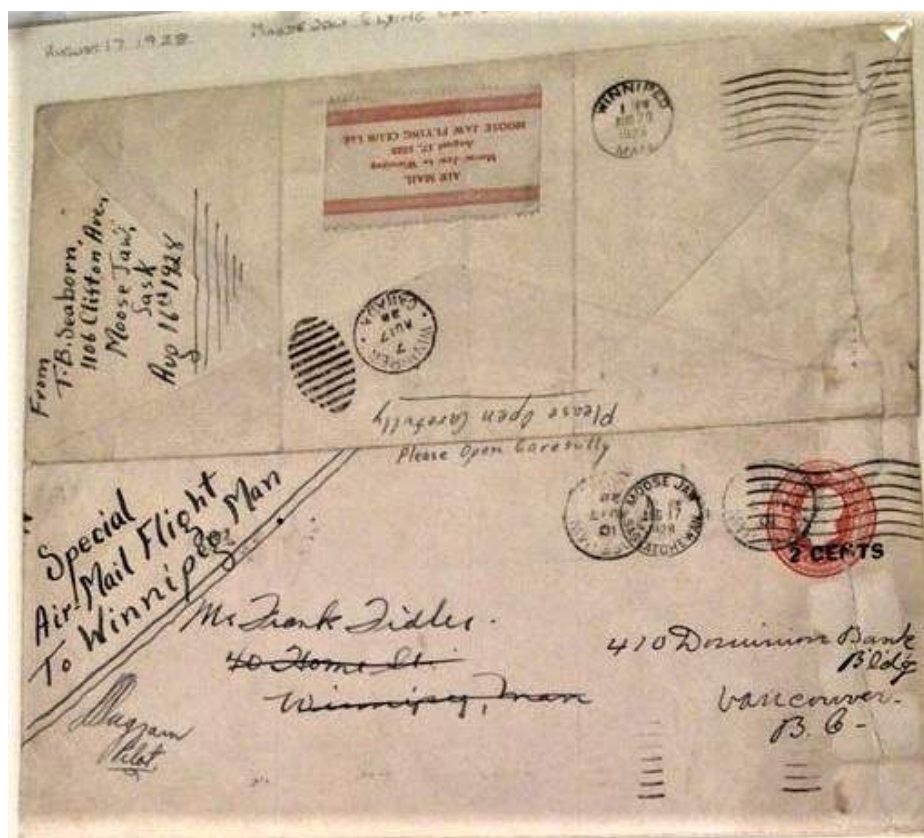 August 17 1928 Moose Jaw Flying
AIR MAIL
Moose Jaw to Winnipeg
August 17, 1928
MOOSE JAW FLYING CLUB Ltd.
WINNIPEG
1928
MAN.
From
T. B. Seaborn,
1106 Clifton Ave,
Moose Jaw,
Sask
Aug 16th 1928
WINNIPEG
7
AU 17
28
CANADA
Please Open Carefully
Please Open Carefully
Special
Air-Mail Flight
To Winnipeg Man
MOOSE JAW
17
1928
SASKATCHEWAN
2 CENTS
Mr Frank Fidler.
40 Home St.
Winnipeg, Man
410 Dominion Bank
Bldg
Vancouver.
B. C-
Pilot